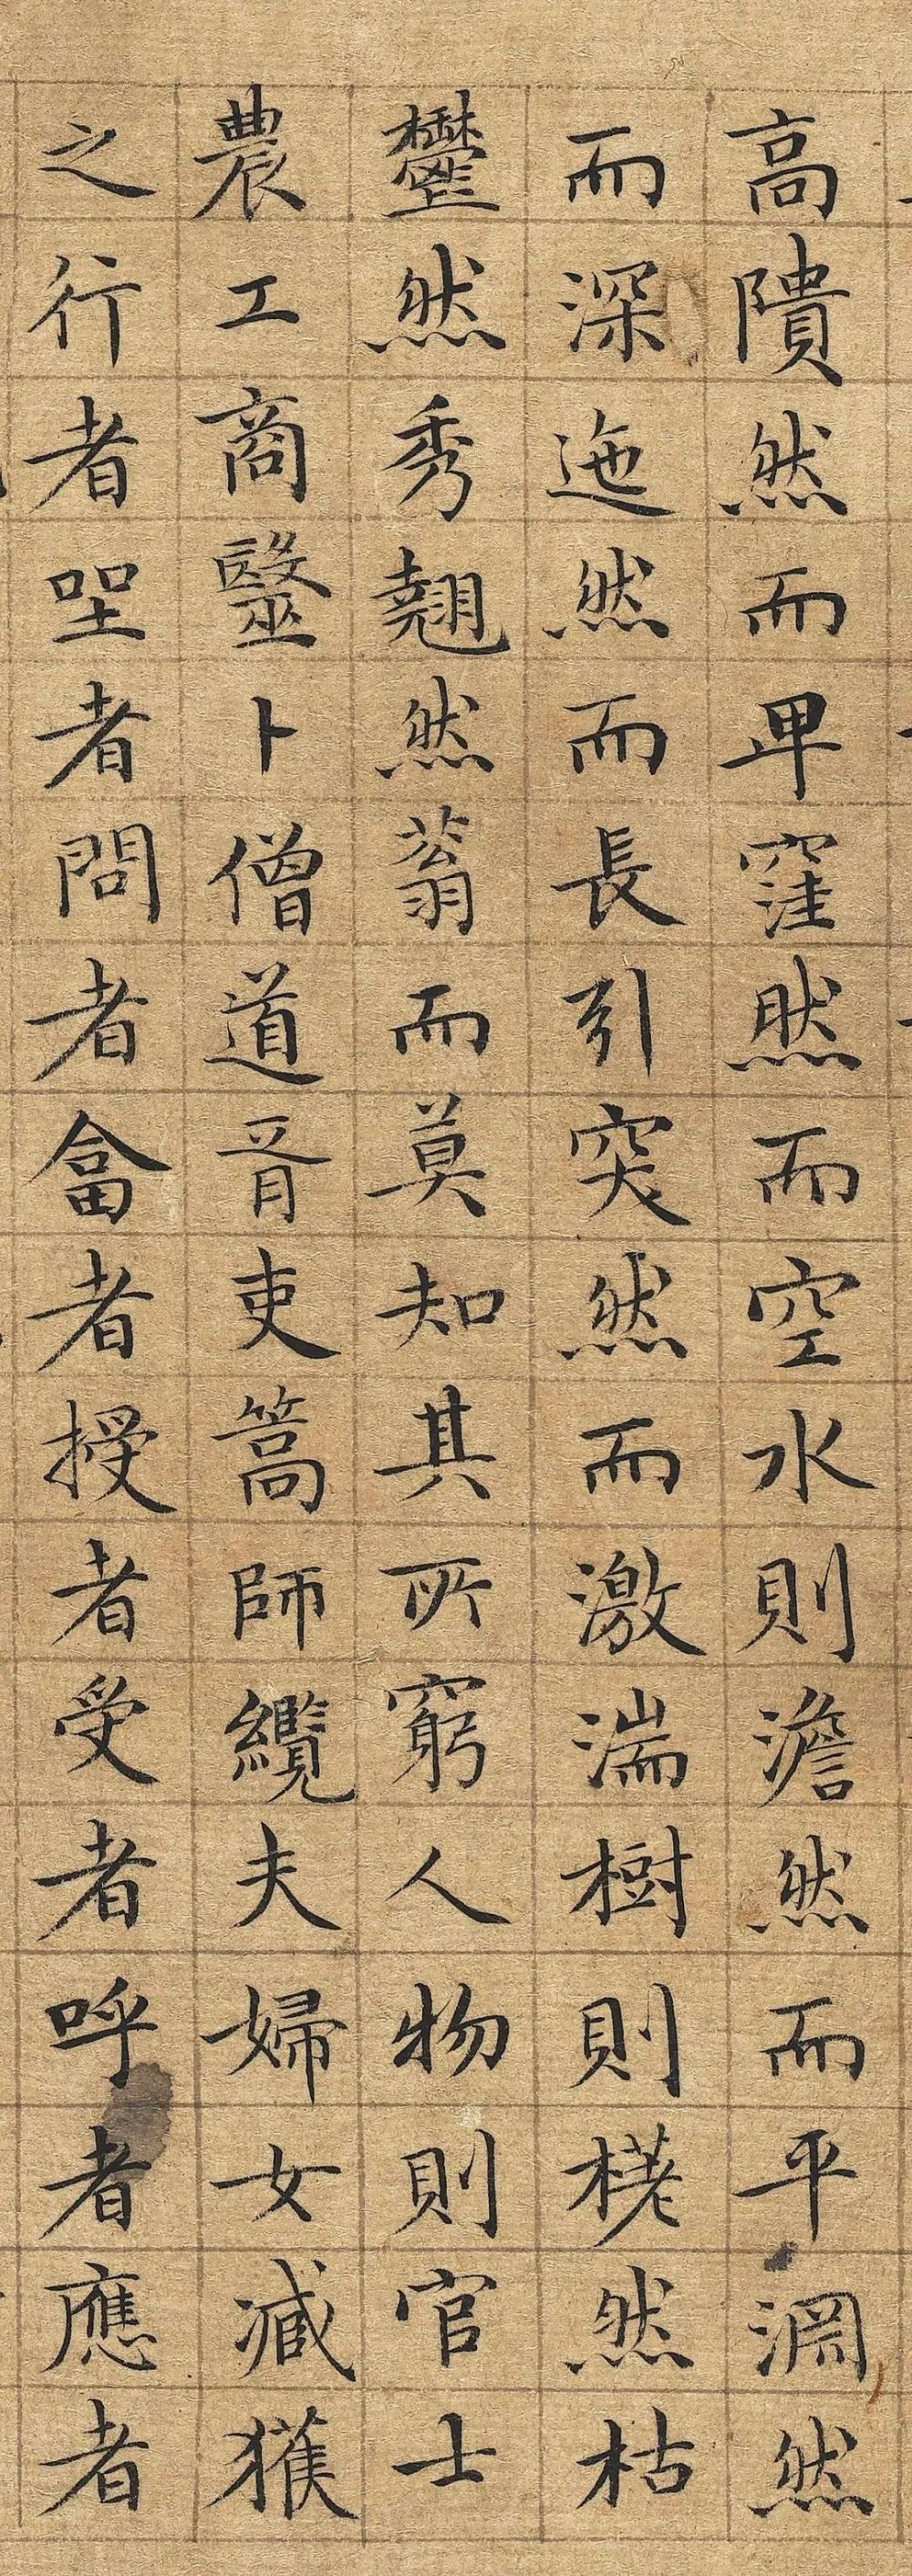 高隤然而卑窪然而空水則澹然而平淵然
而深迤然而長引突然而激湍樹則樷然枯
鬱然秀翹然蓊而莫知其所窮人物則官士
農工商醫卜僧道胥吏篙師纜夫婦女臧獲
之行者坐者問者畣者授者受者呼者應者